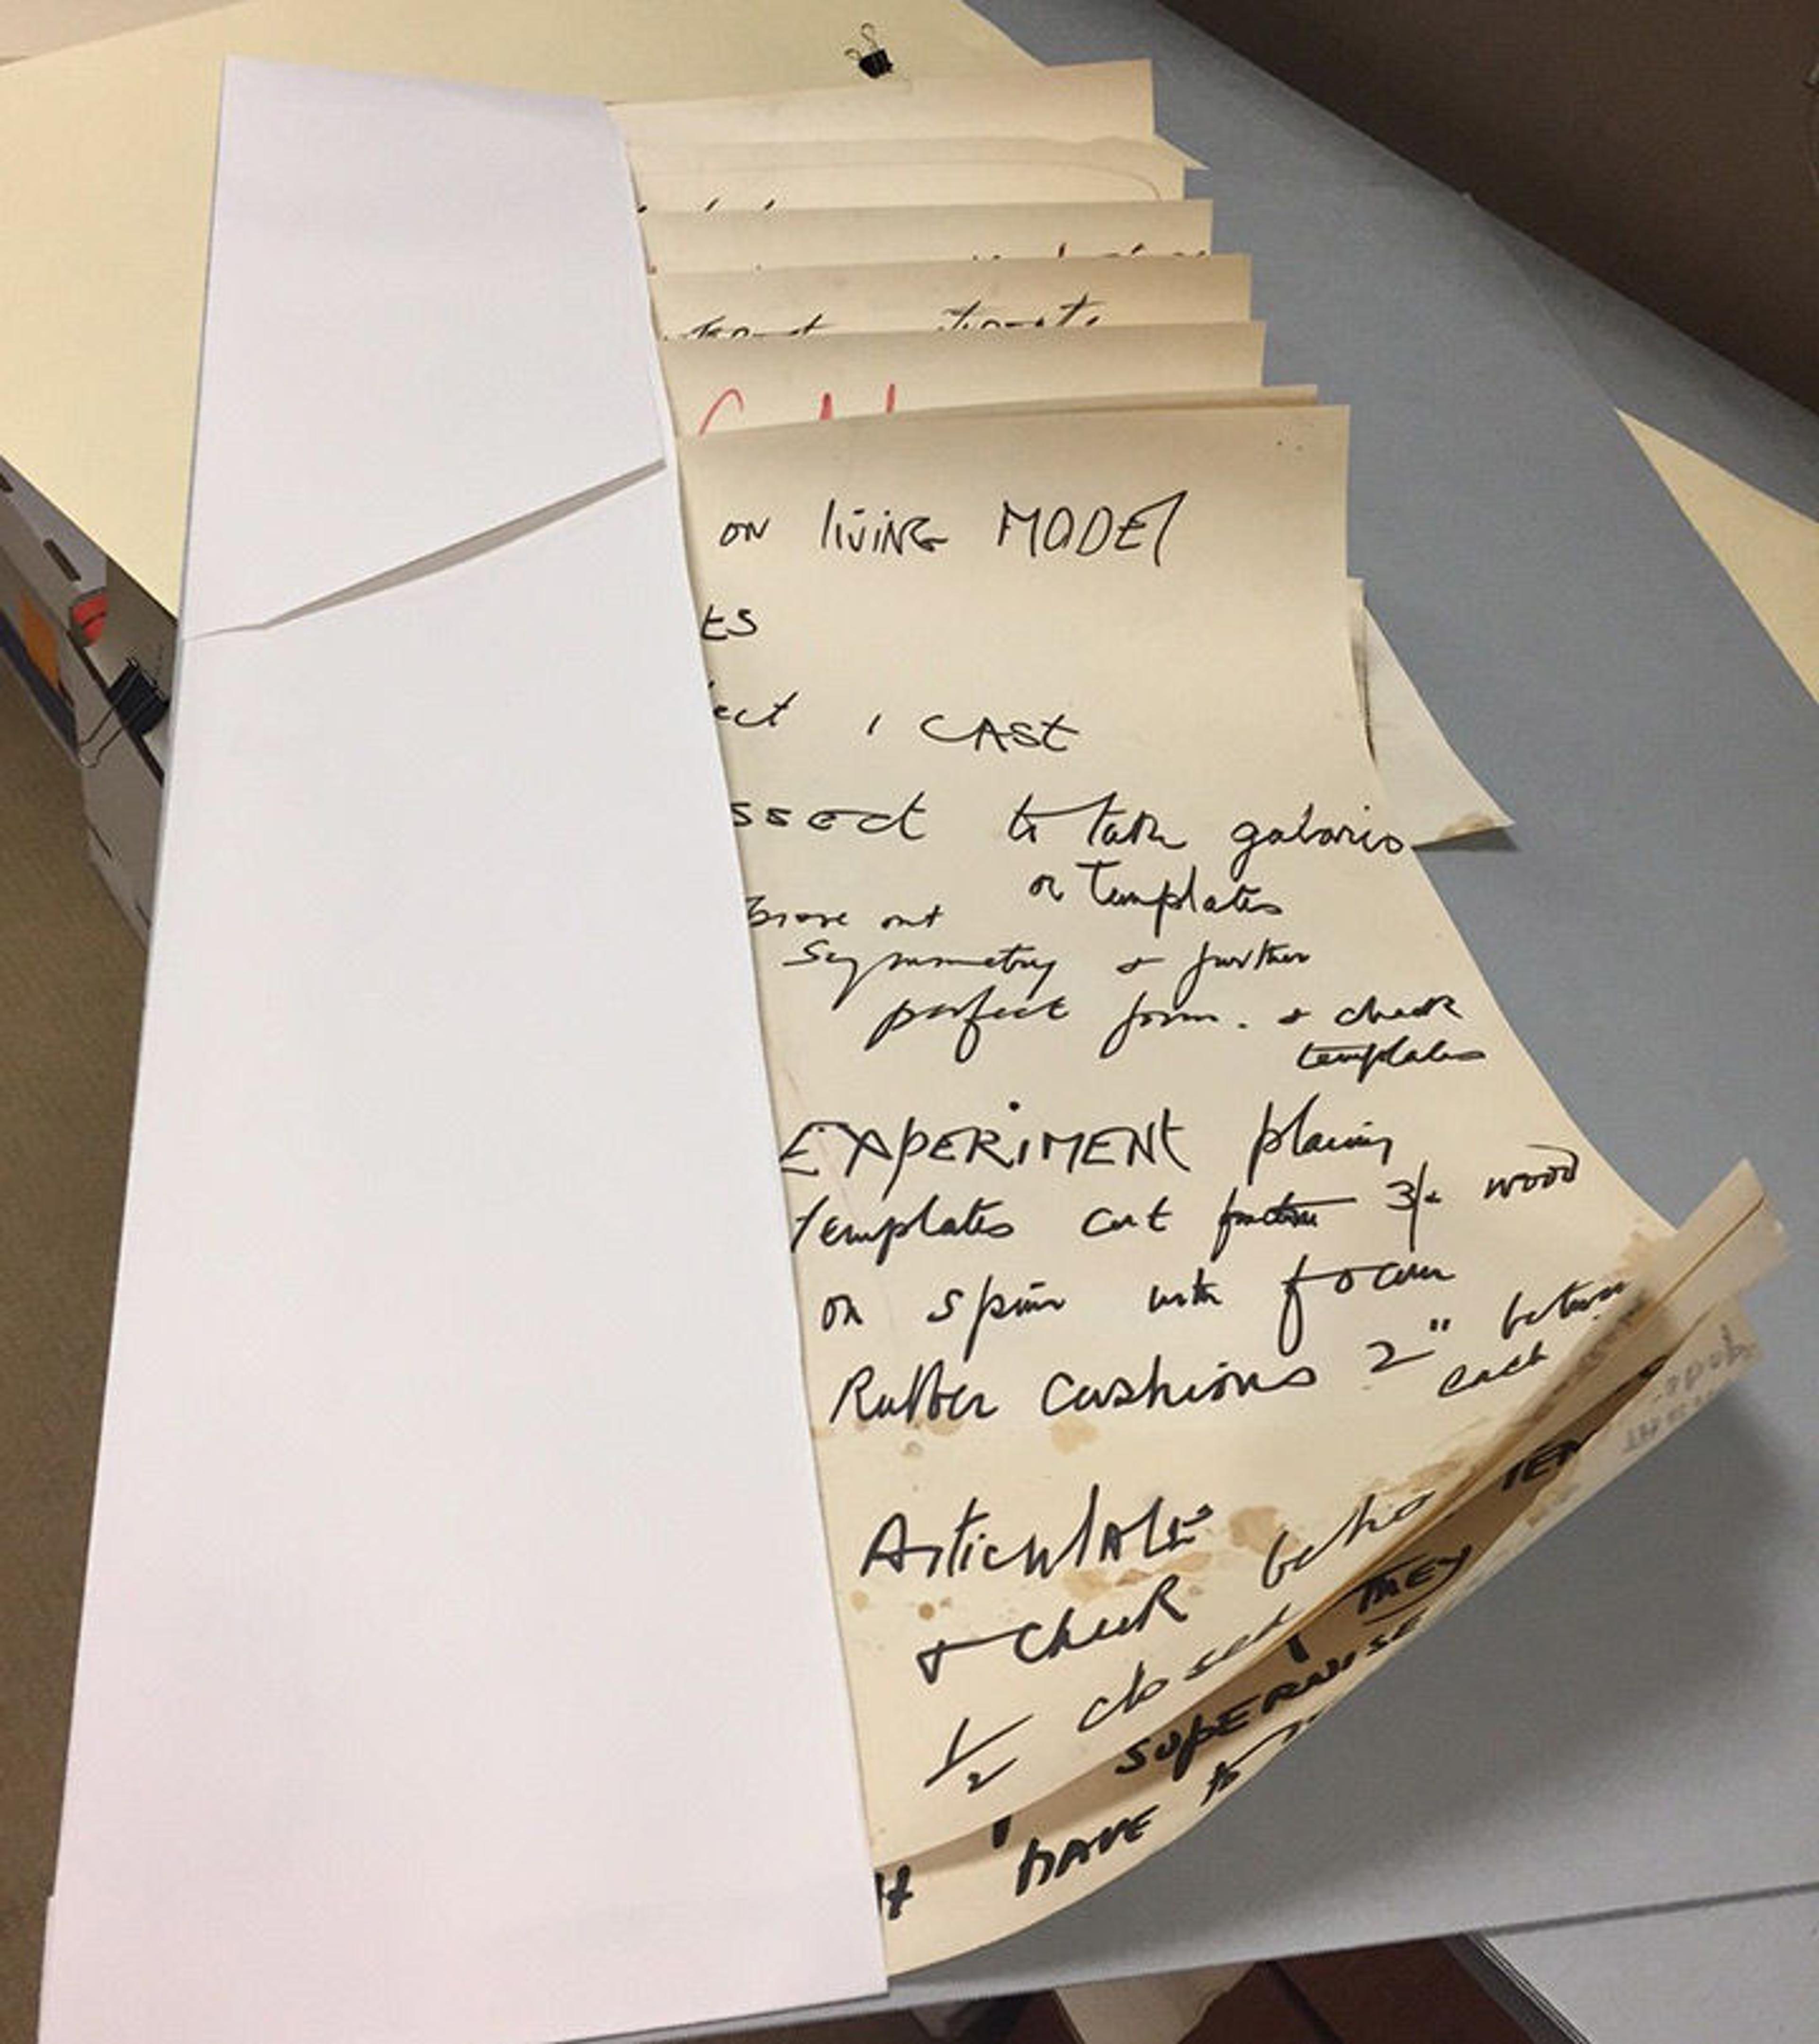 ON liviNG MODEl
ts
ect 1 CASt
ssect to take gabaris
or Templates
prove out
symmetry & further
perfect form. & check
templates
EXPERiMENt placing
templates cut 3/4 wood
on spine with foam
Rubber cushions 2" between
each
ArticulAte
& check
1/2 closed
THEY
SUPERVISE
HAVE to